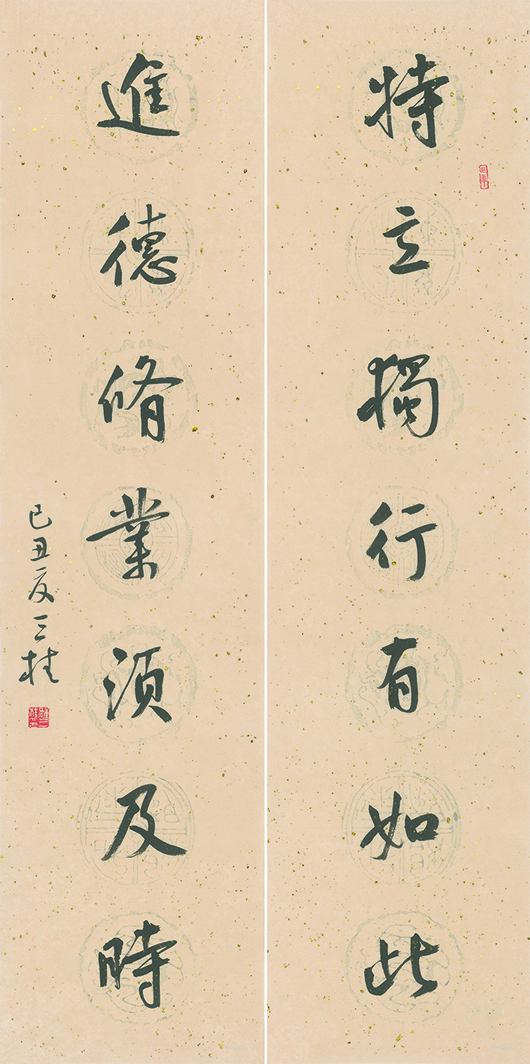 特立獨行有如此
進德脩業須及時
己丑夏三桂